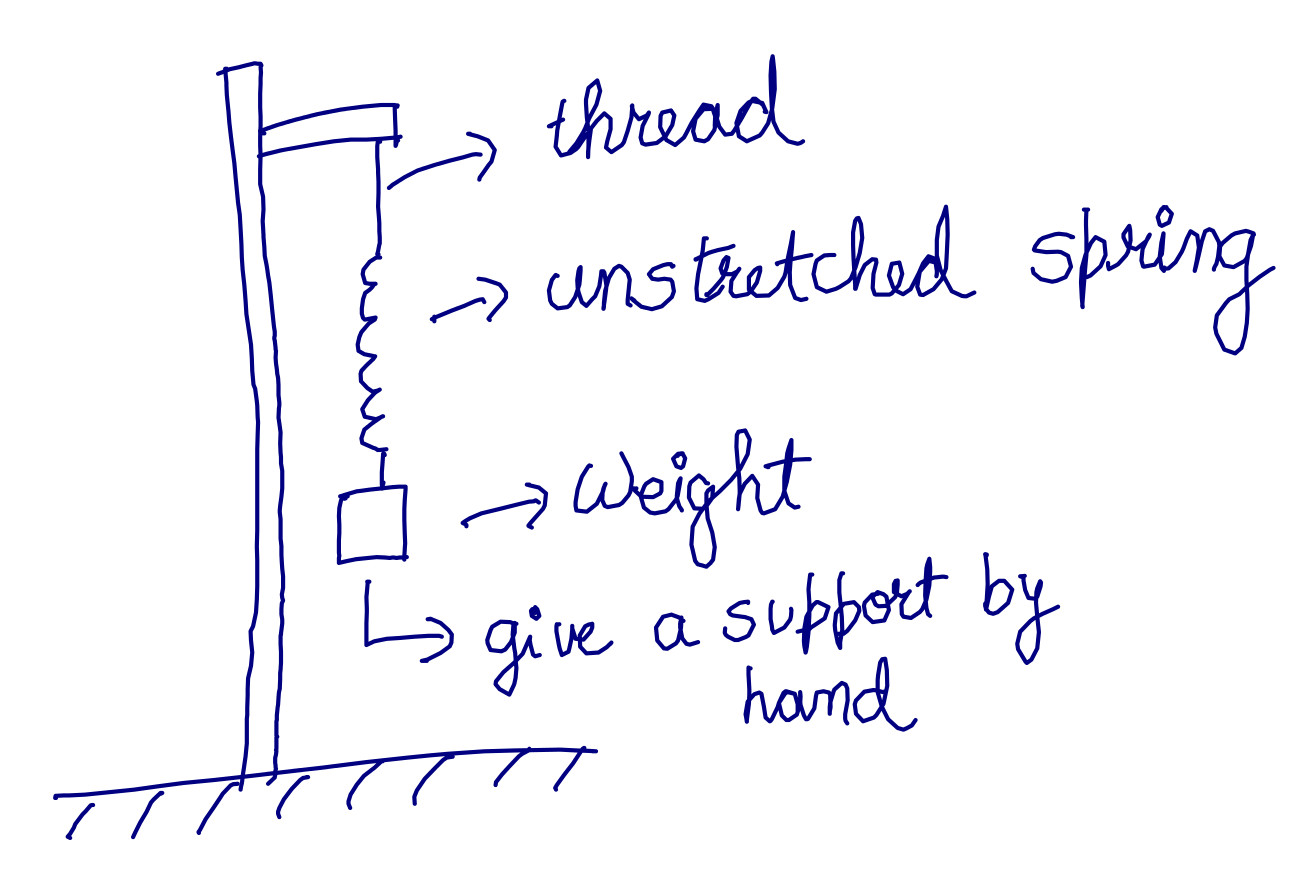 thread
unstretched spring
Weight
give a support by
hand